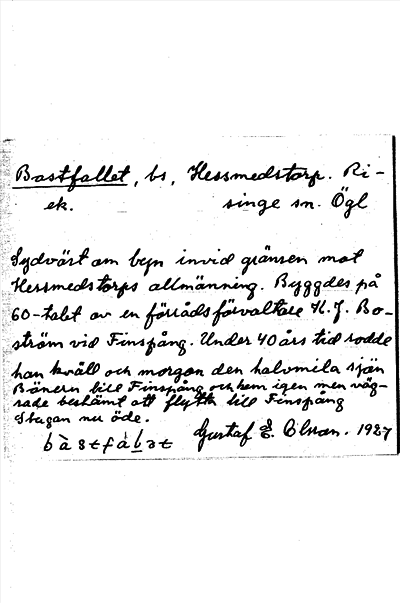 Bastfallet, bs, Hessmedstorp. Ri-
ek. singe sn. Ögl
Sydväst om byn invid gränsen mot
Hessmedstorps allmänning. Byggdes på
60-talet av en förrådsförvaltare K. J. Bo-
ström vid Finspång. Under 40 års tid rodde
han kväll och morgon den halvmila sjön
Bönnern till Finspång och hem igen men väg-
rade bestämt att flytta till Finspång
Stugan nu öde.
Gustaf E. Olsson. 1927